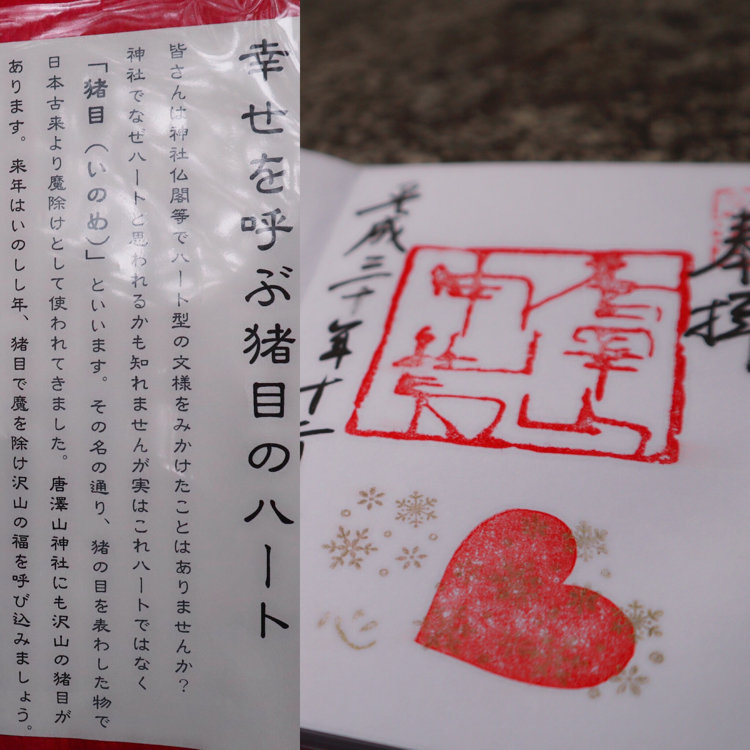 幸せを呼ぶ猪目のハート
皆さんは神社仏閣等でハート型の文様をみかけたことはありませんか？
神社でなぜハートと思われるかも知れませんが実はこれハートではなく
「猪目（いのめ）」といいます。その名の通り、猪の目を表わした物で
日本古来より魔除けとして使われてきました。唐澤山神社にも沢山の猪目が
あります。来年はいのしし年、猪目で魔を除け沢山の福を呼び込みましょう。
奉拝
唐澤山
神社
平成三十年十二